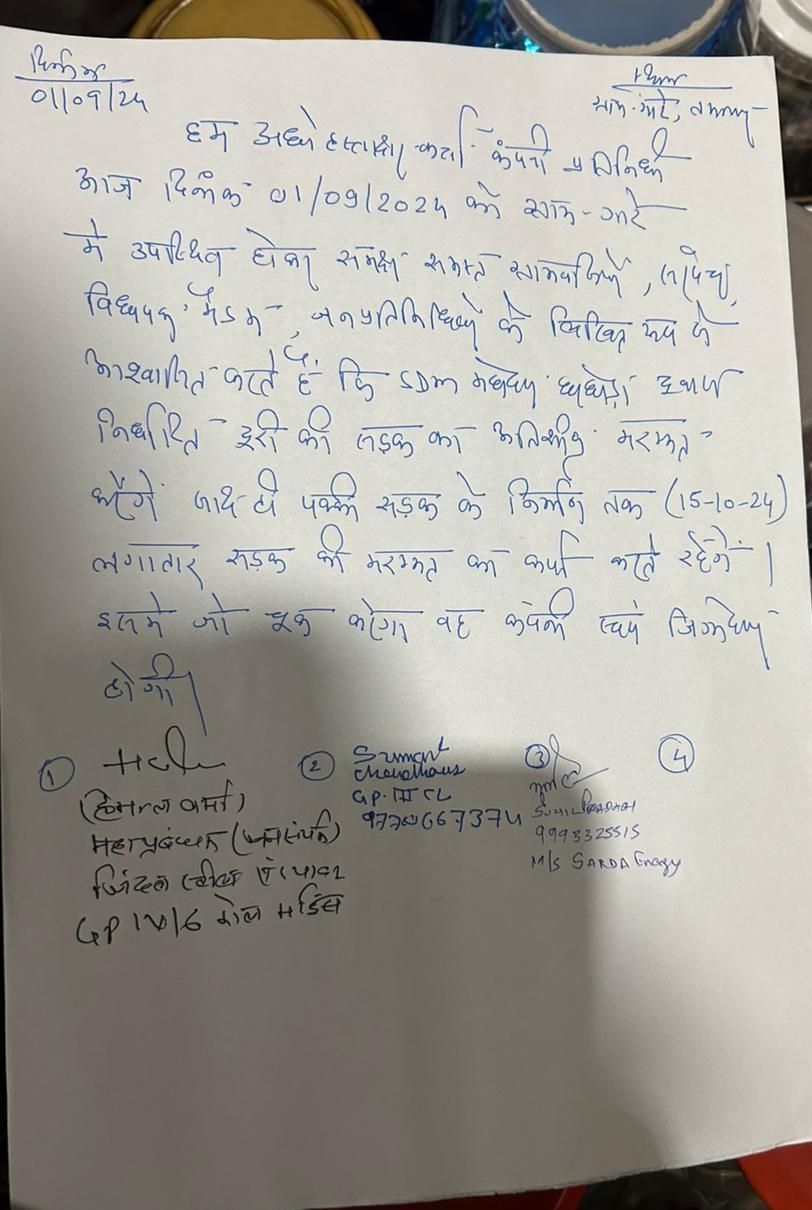 दिनांक
01/09/24
स्थान
ग्राम-गारे, तमनार
हम अधोहस्ताक्षरकर्ता कंपनी प्रतिनिधी
आज दिनांक 01/09/2024 को ग्राम-गारे
मे उपस्थित होकर समक्ष समस्त ग्रामवासियों, सरपंच,
विधायक मैडम, जनप्रतिनिधियों के लिखित रूप से
आश्वासित करते हैं कि SDM महोदय घरघोड़ा द्वारा
निर्धारित दूरी की सड़क का अतिशीघ्र मरम्मत
करेंगे साथ ही पक्की सड़क के निर्माण तक (15-10-24)
लगातार सड़क की मरम्मत का कार्य करते रहेंगे।
इसमे जो चूक करेगा वह कंपनी स्वयं जिम्मेदार
होगी।
①
(हेमन्त वर्मा)
महाप्रबंधक (जनसंपर्क)
जिंदल स्टील एंड पावर
GP IV/6 कोल माइंस
② Sumant
Choudhary
GP-III CL
③
SUNIL PRADHAN
9993325515
M/S SARDA Energy
④